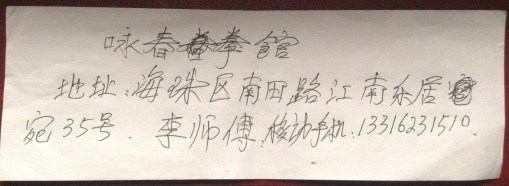 咏春拳館
地址:海珠区南田路江南乐居
宛35号. 李师傅.移动手机:13316231510.